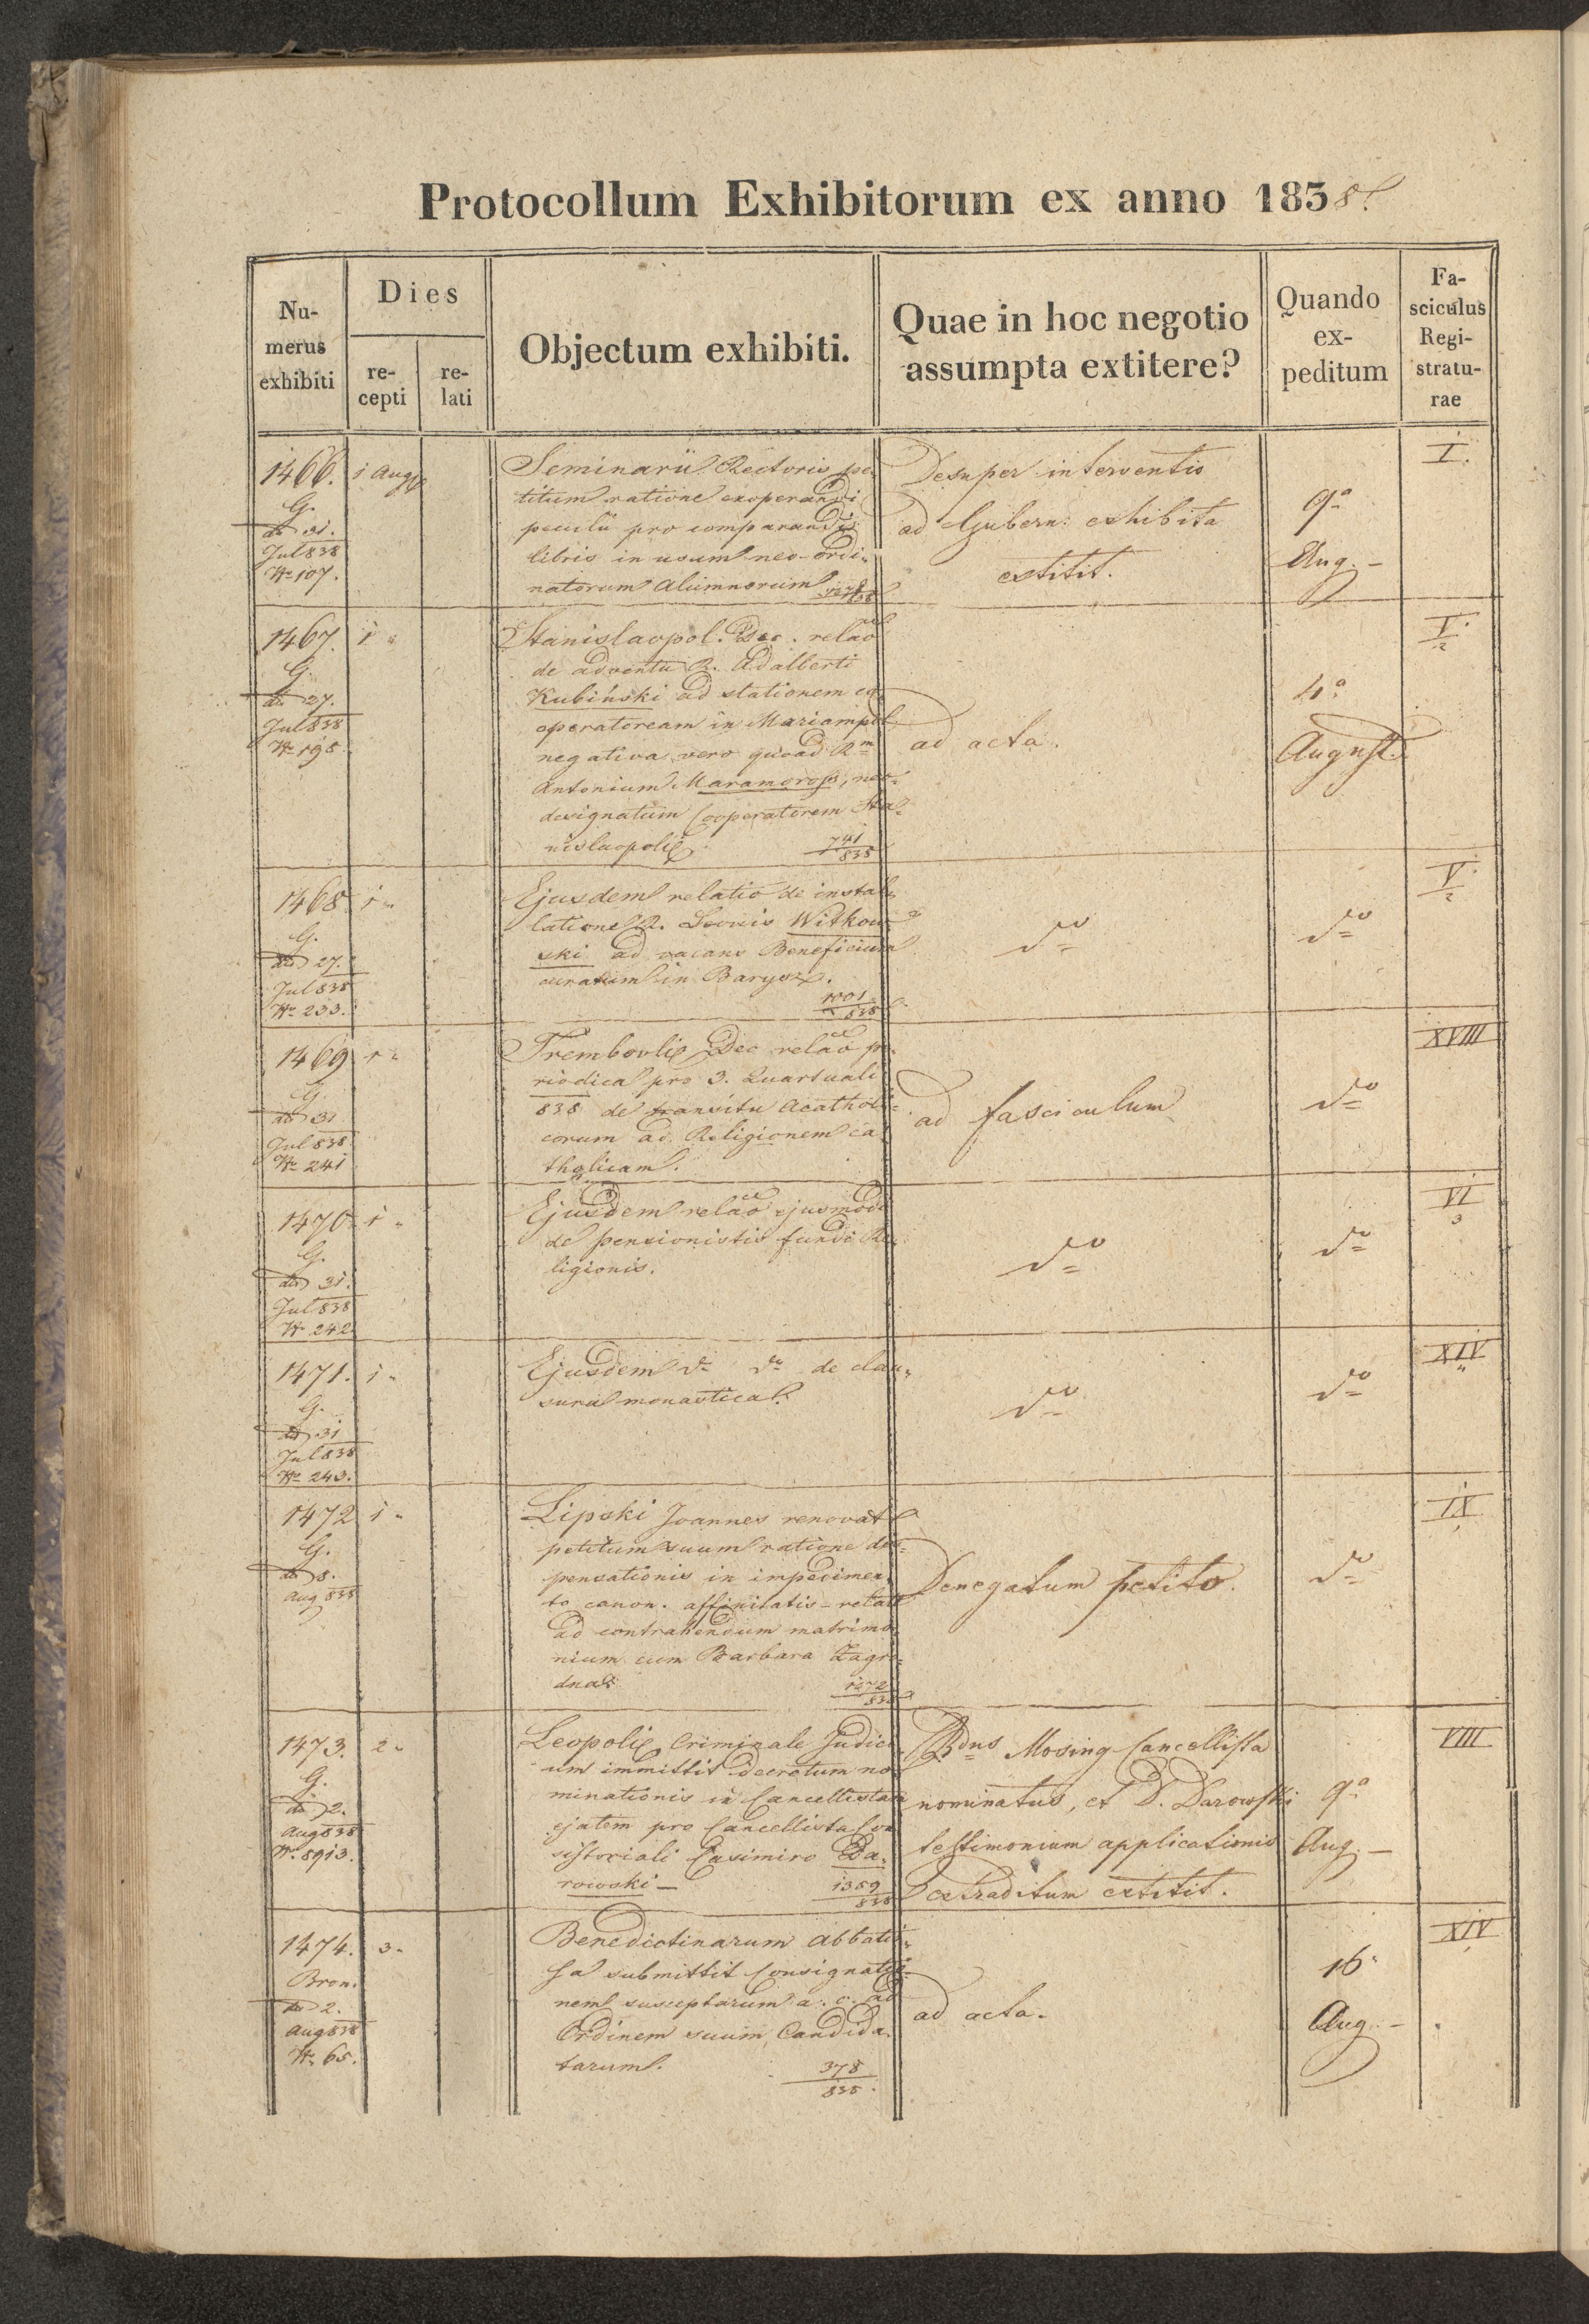 Protocollum Exhibitorum ex anno 1838.
Nu-
merus
exhibiti
Dies
re-
cepti
re-
lati
Objectum exhibiti.
Quae in hoc negotio
assumpta extitere?
Quando
ex-
peditum
Fa-
sciculus
Regi-
stratu-
rae
1466.
G.
do 31.
Jul 838
No 107.
1 Aug
Seminarii Rectoris pe-
titum ratione exoperandi
peculii pro comparandis
libris in usum neo-ordi-
natorum Alumnorum
Desuper interventio
ad Gubern: exhibita
extitit.
9a
Aug.-
I.
1467.
G.
do 27.
Jul 838
No 195.
1 "
Stanislaopol. Dec. relao
de adventu R. Adalberti
Kubiński ad stationem co-
operatoream in Mariampol
negativa vero quoad Rm
Antonium Maramorosz, neo-
designatum Cooperatorem Sta-
nislaopoli
741
838
ad acta.
4a
August
I.
2
1468
G.
do 27.
Jul 838
No 233.
1 "
Ejusdem relatio de instal-
latione R. Leonis Witkow-
ski ad vacans Beneficium
curatum in Barysz.
1001
838
do
do
V.
2
1469
G.
do 31
Jul 838
No 241
1 "
Trembovlis Dec relao pe-
riodica pro 3. Quartuali
838 de transitu Acatholi-
corum ad Religionem ca-
tholicam.
ad fasciculum
do
XVIII
1470
G.
do 31.
Jul 838
No 242
1 "
Ejusdem relao ejusmodi
de pensionistis fundi Re-
ligionis.
do
do
VI
3
1471.
G.
do 31
Jul 838
No 243.
1 "
Ejusdem do do de clau-
sura monastica.
do
do
XIV
1472
G.
do 8.
Aug 838
1 "
Lipski Joannes renovat
petitum suum ratione dis-
pensationis in impedimen-
to canon. affinitatis - relate
ad contrahendum matrimo-
nium cum Barbara Zagro-
dna
1272
838
Denegatum petito.
do
IX
1473.
G.
do 2.
Aug 838
No 8913.
2 "
Leopoli Criminale Judici-
um immittit decretum no-
minationis in Cancellistam
ejatem pro Cancellista Con-
sistoriali Casimiro Da-
rowski -
1359
838
Bdnus Mosing Cancellista
nominatus, et D. Darowski
testimonium applicationis
extraditum extitit.
9a
Aug -
VIII
1474.
Bron.
do 2.
Aug 838
No 65.
3 "
Benedictinarum Abbatis-
sa submittit Consignatio-
nem susceptarum a. c. ad
Ordinem suum Candida-
tarum.
378
838.
ad acta.
16.
Aug. -
XIV